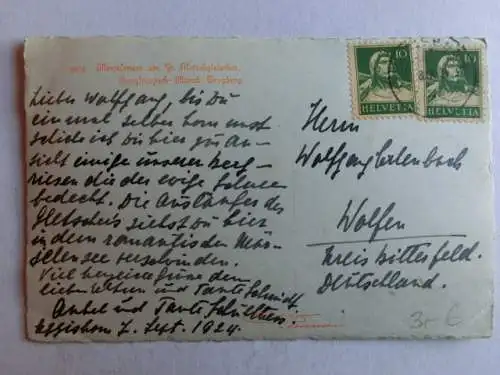 Märjelensee am Gr. Aletschgletscher,
Jungfraujoch-Mönch
Lieber Wolfgang, bis Du
einmal selber komst
schicke ich Dir hier zu An-
sicht einige unserer Berg-
riesen die der ewige Schnee
bedeckt. Die Ausläufer des
Gletschers siehst Du hier
in dem romantischen Mär-
jelensee verschwinden.
Viel herzliche Grüsse den
lieben Eltern und Tante Schmidt
Onkel und Tante Schulthess
Eggishorn 7. Sept. 1924.
10
HELVETIA
10
HELVETIA
Herrn
Wolfgang Erlenbach
Wolfen
Kreis Bitterfeld.
Deutschland.
3.- €